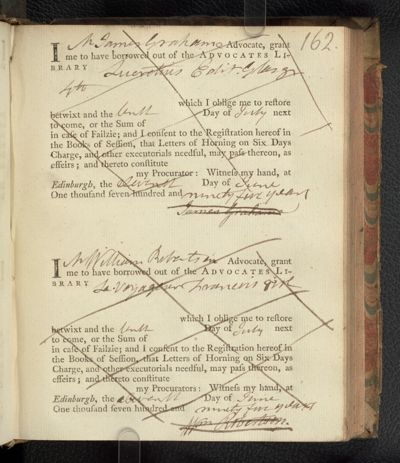 162.
I Mr James Graham Advocate, grant
me to have borrowed out of the ADVOCATES LI-
BRARY Lucretius Edit
4to
which I oblige me to restore
betwixt and the tenth Day of July next
to come, or the Sum of
in case of Failzie; and I consent to the Registration hereof in
the Books of Session, that Letters of Horning on Six Days
Charge, and other executorials needful, may pass thereon, as
effeirs; and thereto constitute
my Procurator: Witness my hand, at
Edinburgh, the Day of June
One thousand seven hundred and ninety five years
James Graham
I Mr William Robertson Advocate, grant
me to have borrowed out of the ADVOCATES LI-
BRARY Le Voyageur Francois
which I oblige me to restore
betwixt and the tenth Day of July next
to come, or the Sum of
in case of Failzie; and I consent to the Registration hereof in
the Books of Session, that Letters of Horning on Six Days
Charge, and other executorials needful, may pass thereon, as
effeirs; and thereto constitute
my Procurators: Witness my hand, at
Edinburgh, the eleventh Day of June
One thousand seven hundred and ninety five years
Wm Robertson.